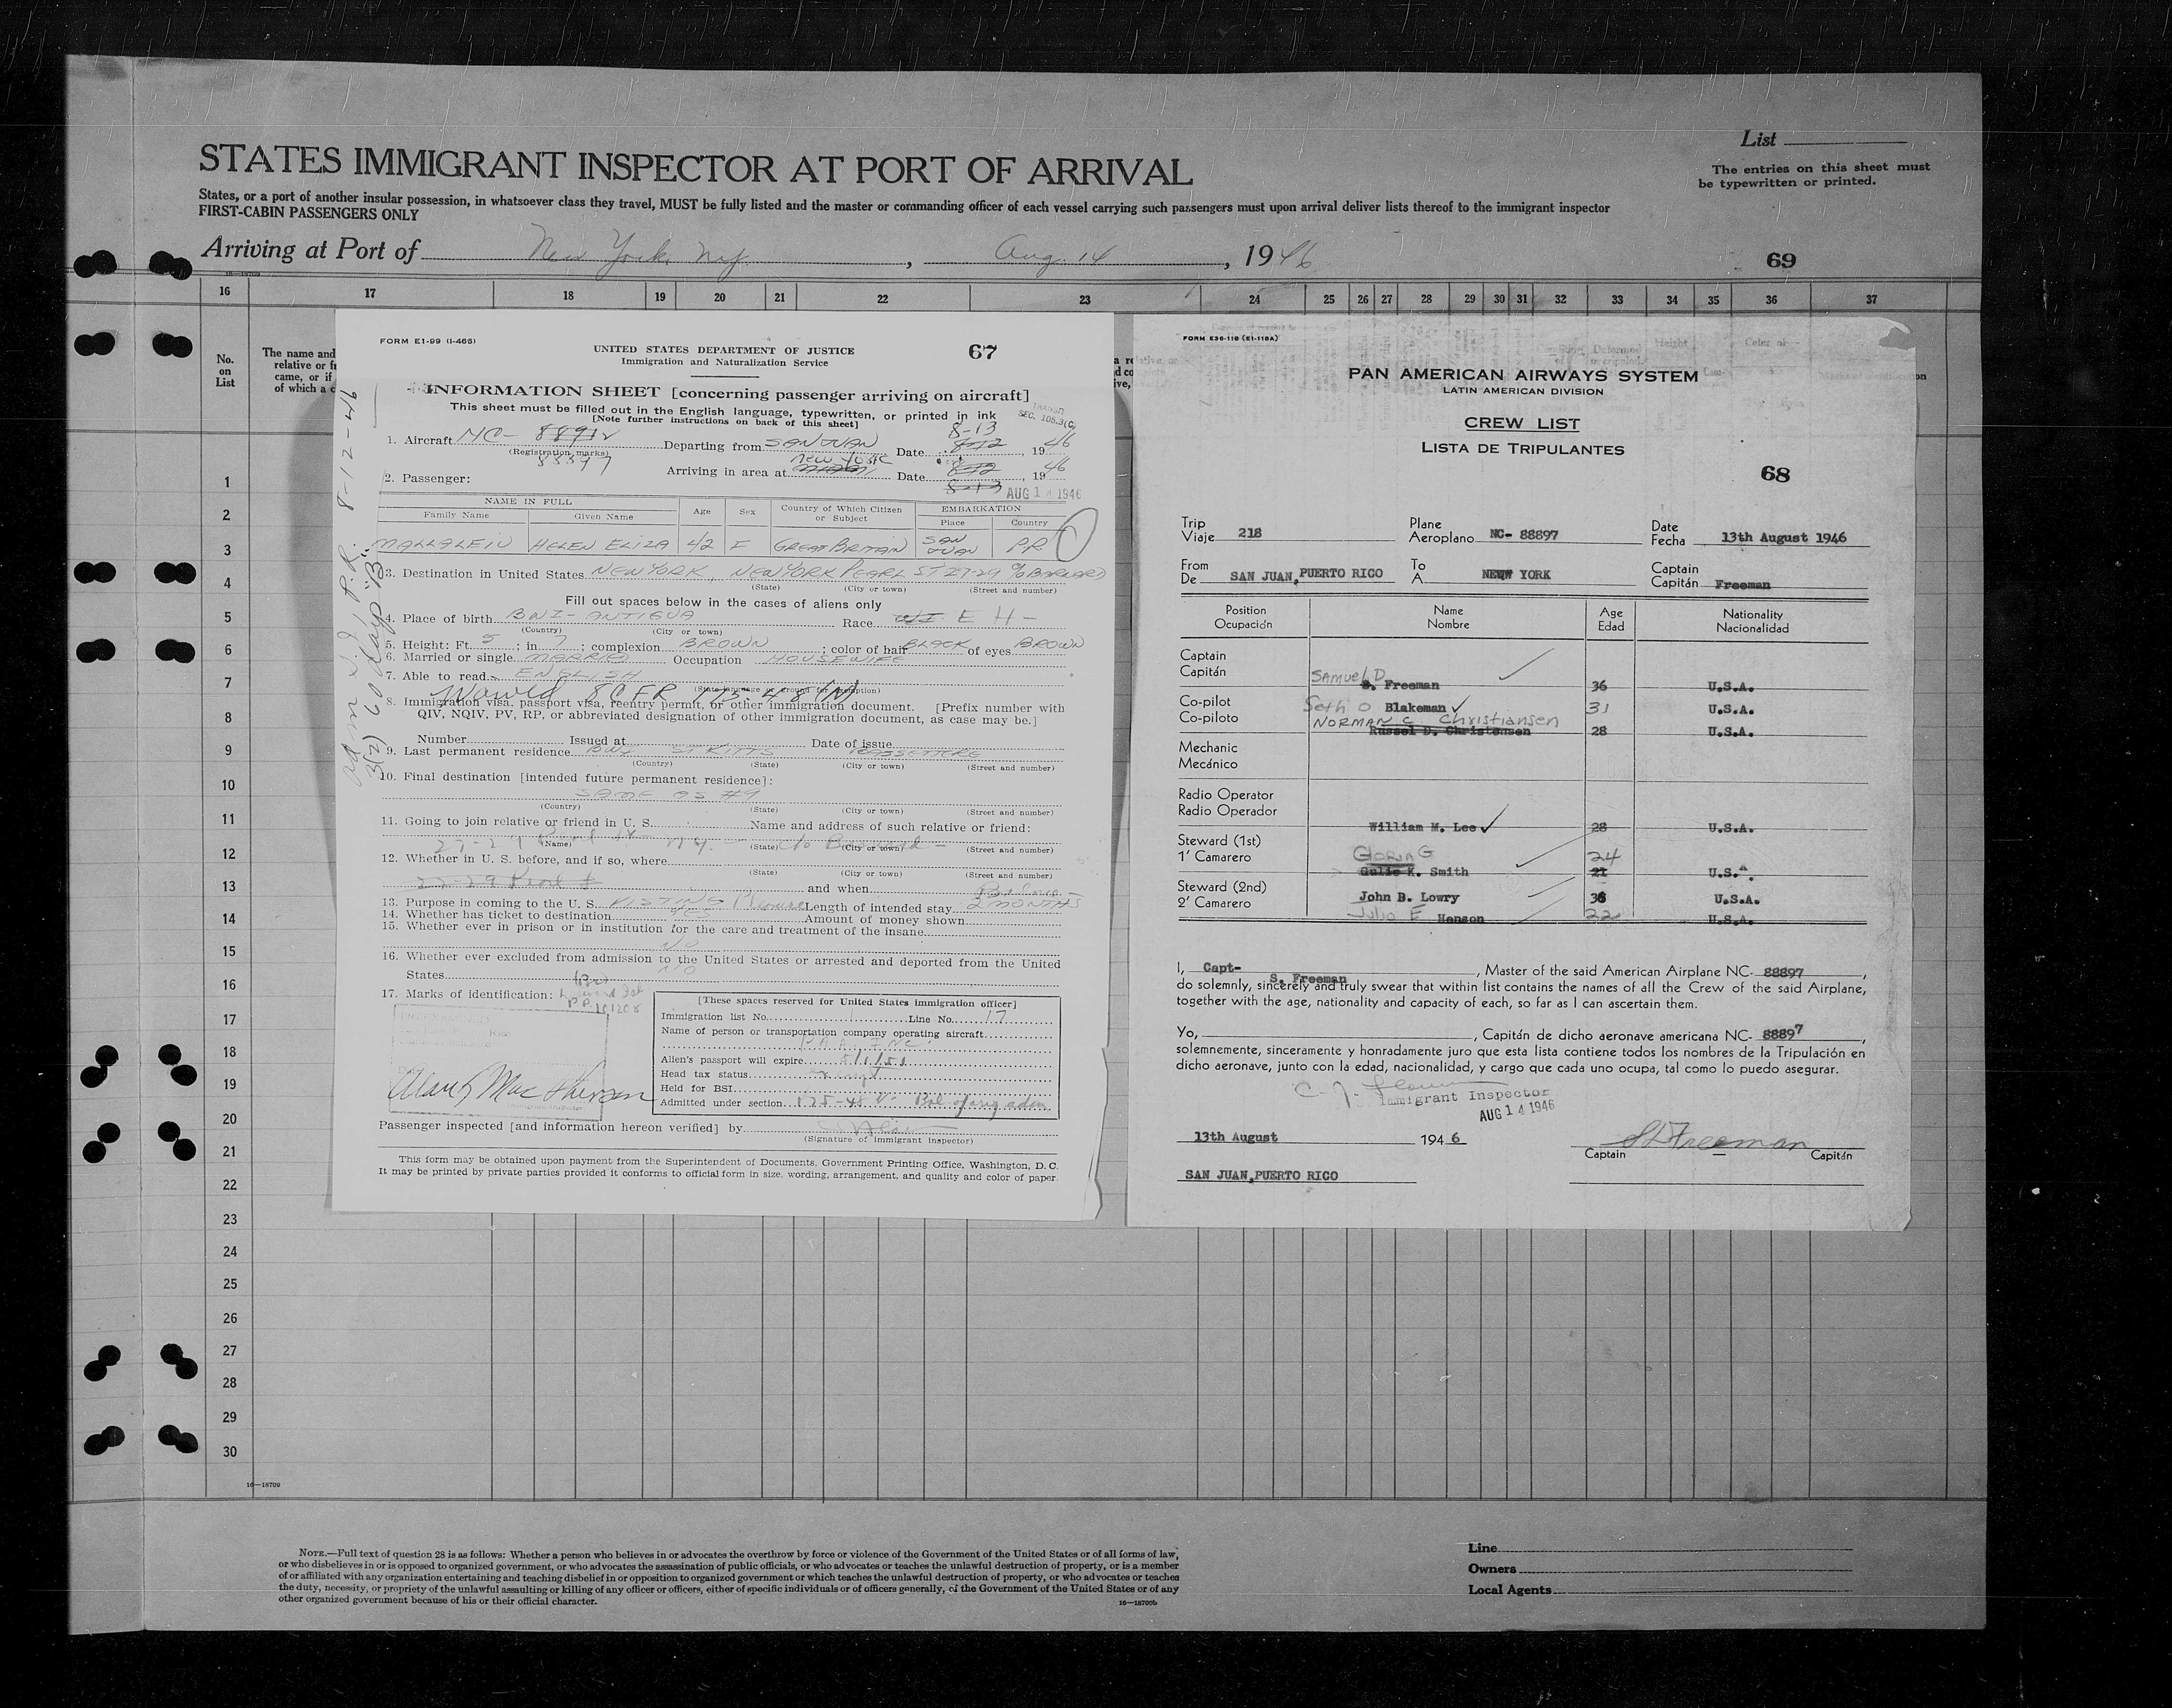 List
STATES IMMIGRANT INSPECTOR AT PORT OF ARRIVAL
The entries on this sheet must
be typewritten or printed.
States, or a port of another insular possession, in whatsoever class they travel, MUST be fully listed and the master or commanding officer of each vessel carrying such passengers must upon arrival deliver lists thereof to the immigrant inspector
FIRST-CABIN PASSENGERS ONLY
Arriving at Port of New York, NY, Aug. 14, 1946
69
16 17 18 19 20 21 22 23 24 25 26 27 28 29 30 31 32 33 34 35 36 37
No.
on
List
The name and
relative or
came, or if
of which a
1
2
3
4
5
6
7
8
9
10
11
12
13
14
15
16
17
18
19
20
21
22
23
24
25
26
27
28
29
30
16—18709
FORM E1-99 (I-466)
UNITED STATES DEPARTMENT OF JUSTICE
67
Immigration and Naturalization Service
INFORMATION SHEET [concerning passenger arriving on aircraft]
This sheet must be filled out in the English language, typewritten, or printed in ink
[Note further instructions on back of this sheet]
TRANSIT
SEC. 105.3(C)
8-13
1. Aircraft NC- 88912 Departing from SAN JUAN Date 8-12, 1946
(Registration marks)
88897
NEW YORK
Arriving in area at MIAMI Date 8-12, 1946
8-13
AUG 14 1946
2. Passenger:
NAME IN FULL Age Sex Country of Which Citizen or Subject EMBARKATION
Family Name Given Name Place Country
HELEN ELIZA 42 F GREAT BRITAIN SAN JUAN P.R.
3. Destination in United States NEW YORK, NEW YORK PEARL ST 27-29 % BARNARD
(State) (City or town) (Street and number)
Fill out spaces below in the cases of aliens only
4. Place of birth BWI - ANTIGUA Race W.I. E H -
(Country) (City or town)
5. Height: Ft. 5; in 7; complexion BROWN; color of hair BLACK of eyes BROWN
6. Married or single MARRIED Occupation HOUSEWIFE
7. Able to read ENGLISH
(State language or ground for exemption)
Waived 8 CFR 175.48(N)
8. Immigration visa, passport visa, reentry permit, or other immigration document. [Prefix number with
QIV, NQIV, PV, RP, or abbreviated designation of other immigration document, as case may be.]
Number Issued at Date of issue
9. Last permanent residence BWI ST KITTS BASSETERRE
(Country) (State) (City or town) (Street and number)
10. Final destination [intended future permanent residence]:
SAME AS #9
(Country) (State) (City or town) (Street and number)
11. Going to join relative or friend in U. S. Name and address of such relative or friend:
27-29 Pearl St N.Y. c/o Barnard
(Name) (State) (City or town) (Street and number)
12. Whether in U. S. before, and if so, where
(State) (City or town) (Street and number)
27-29 Pearl St and when
13. Purpose in coming to the U. S. VISITING Pleasure Length of intended stay 2 MONTHS
14. Whether has ticket to destination YES Amount of money shown
15. Whether ever in prison or in institution for the care and treatment of the insane
NO
16. Whether ever excluded from admission to the United States or arrested and deported from the United
States NO
17. Marks of identification:
P.P. 101208
[These spaces reserved for United States immigration officer]
Immigration list No. 1 Line No. 17
Name of person or transportation company operating aircraft
P.A.A. INC.
Alien's passport will expire 5/1/51
Head tax status exempt
Held for BSI
Admitted under section 175-48 N Bal of orig adm
Passenger inspected [and information hereon verified] by
(Signature of immigrant inspector)
This form may be obtained upon payment from the Superintendent of Documents, Government Printing Office, Washington, D. C.
It may be printed by private parties provided it conforms to official form in size, wording, arrangement, and quality and color of paper.
3(2) 60 days "B"
8-12-46
FORM E36-118 (E1-118A)
PAN AMERICAN AIRWAYS SYSTEM
LATIN AMERICAN DIVISION
CREW LIST
LISTA DE TRIPULANTES
68
Trip
Viaje 218
Plane
Aeroplano NC- 88897
Date
Fecha 13th August 1946
From
De SAN JUAN, PUERTO RICO
To
A NEW YORK
Captain
Capitán Freeman
Position
Ocupación
Name
Nombre
Age
Edad
Nationality
Nacionalidad
Captain
Capitán
SAMUEL D.
S. Freeman 36 U.S.A.
Co-pilot
Co-piloto
Seth O Blakeman 31 U.S.A.
NORMAN C. Christiansen
Russel D. Christensen 28 U.S.A.
Mechanic
Mecánico
Radio Operator
Radio Operador
William M. Lee 28 U.S.A.
Steward (1st)
1' Camarero
GLORIA G 24
Julie K. Smith 21 U.S.A.
Steward (2nd)
2' Camarero
John B. Lowry 38 U.S.A.
Julio E Henson 22 U.S.A.
I, Capt- S. Freeman, Master of the said American Airplane NC- 88897,
do solemnly, sincerely and truly swear that within list contains the names of all the Crew of the said Airplane,
together with the age, nationality and capacity of each, so far as I can ascertain them.
Yo, , Capitán de dicho aeronave americana NC- 88897,
solemnemente, sinceramente y honradamente juro que esta lista contiene todos los nombres de la Tripulación en
dicho aeronave, junto con la edad, nacionalidad, y cargo que cada uno ocupa, tal como lo puedo asegurar.
Immigrant Inspector
AUG 14 1946
13th August 1946
S D Freeman
Captain Capitán
SAN JUAN, PUERTO RICO
NOTE.—Full text of question 28 is as follows: Whether a person who believes in or advocates the overthrow by force or violence of the Government of the United States or of all forms of law,
or who disbelieves in or is opposed to organized government, or who advocates the assassination of public officials, or who advocates or teaches the unlawful destruction of property, or is a member
of or affiliated with any organization entertaining and teaching disbelief in or opposition to organized government or which teaches the unlawful destruction of property, or who advocates or teaches
the duty, necessity, or propriety of the unlawful assaulting or killing of any officer or officers, either of specific individuals or of officers generally, of the Government of the United States or of any
other organized government because of his or their official character.
16—18709b
Line
Owners
Local Agents